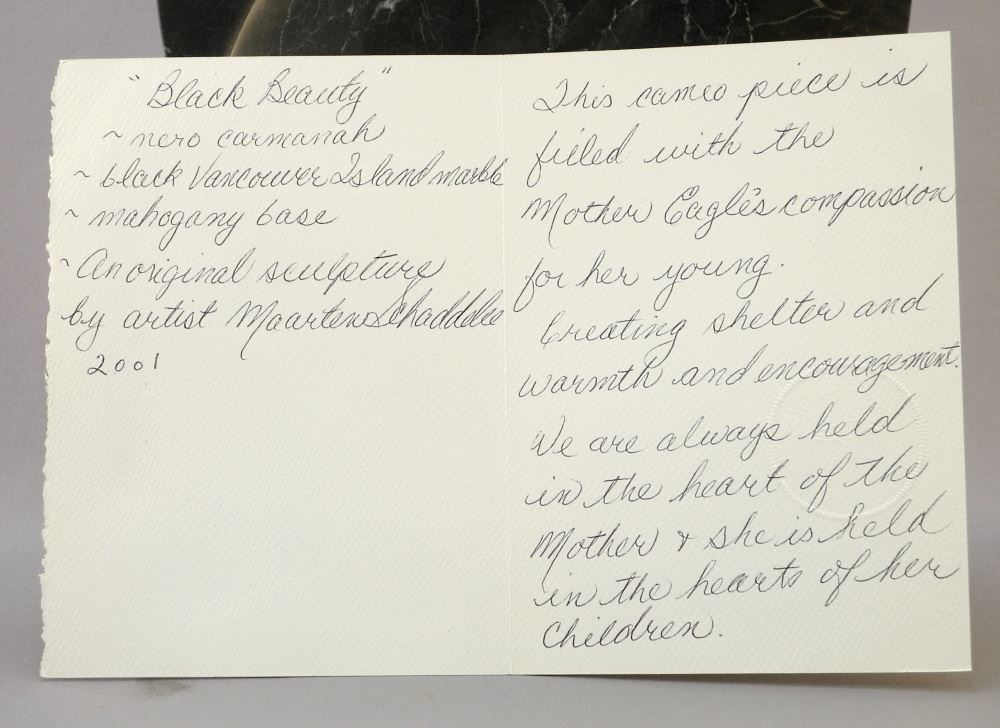 "Black Beauty"
~ nero carmanah
~ black Vancouver Island marble
~ mahogany base
~ An original sculpture
by artist Maarten Schaddelee
2001
This cameo piece is
filled with the
Mother Eagle's compassion
for her young.
Creating shelter and
warmth and encouragement.
We are always held
in the heart of the
Mother & she is held
in the hearts of her
Children.